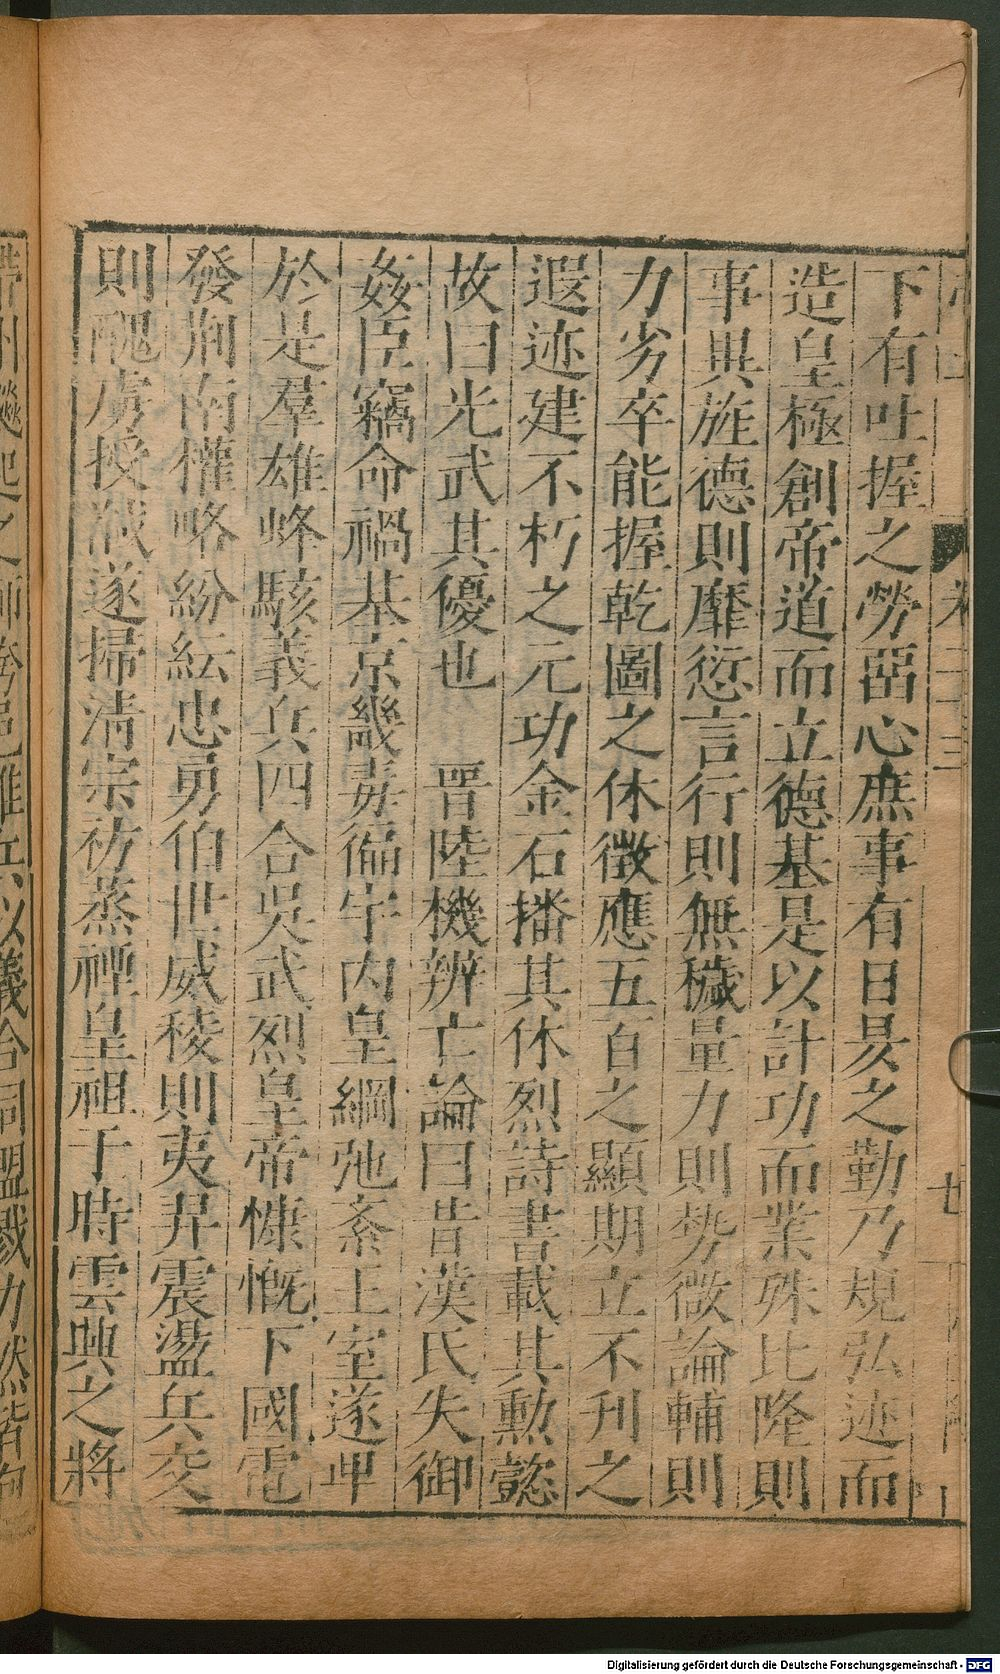 下有吐握之勞畱心庶事有日昃之勤乃規弘迹而
造皇極創帝道而立德基是以計功而業殊比隆則
事異旌德則靡愆言行則無穢量力則势微論輔則
力劣卒能握乾圖之休徵應五百之顯期立不刋之
遐迹建不朽之元功金石播其休烈詩書載其勳懿
故曰光武其優也 晉陸機辨亡論曰昔漢氏失御
姦臣竊命禍基京畿毒徧宇內皇綱弛紊王室遂卑
於是羣雄蜂駭義兵四合吳武烈皇帝慷慨下國電
發荊南權略紛紜忠勇伯世威稜則夷羿震盪兵交
則醜虜授馘遂掃清宗祊蒸禋皇祖于時雲興之將
卷二十三
廿
起之師跨邑 兵以義合同盟戮力然皆包
Digitalisierung gefördert durch die Deutsche Forschungsgemeinschaft - DFG